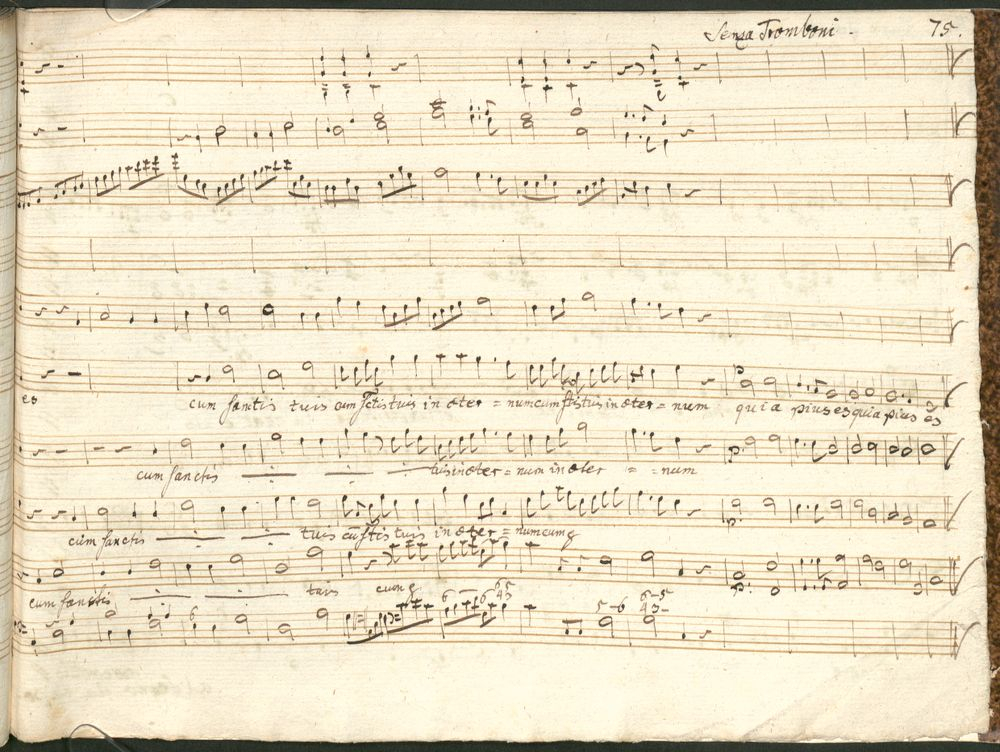 Senza Tromboni. 75.
es cum sanctis tuis cum sctis tuis in æter = num cum sctis tuis in æter = num quia pius es quia pius es
cum sanctis tuis in æter = num in æter = = num
cum sanctis tuis cū sctis tuis in æter = num cum
cum sanctis tuis cum
6 6 6 5 4 3 5 - 6 6 - 5 4 3 -